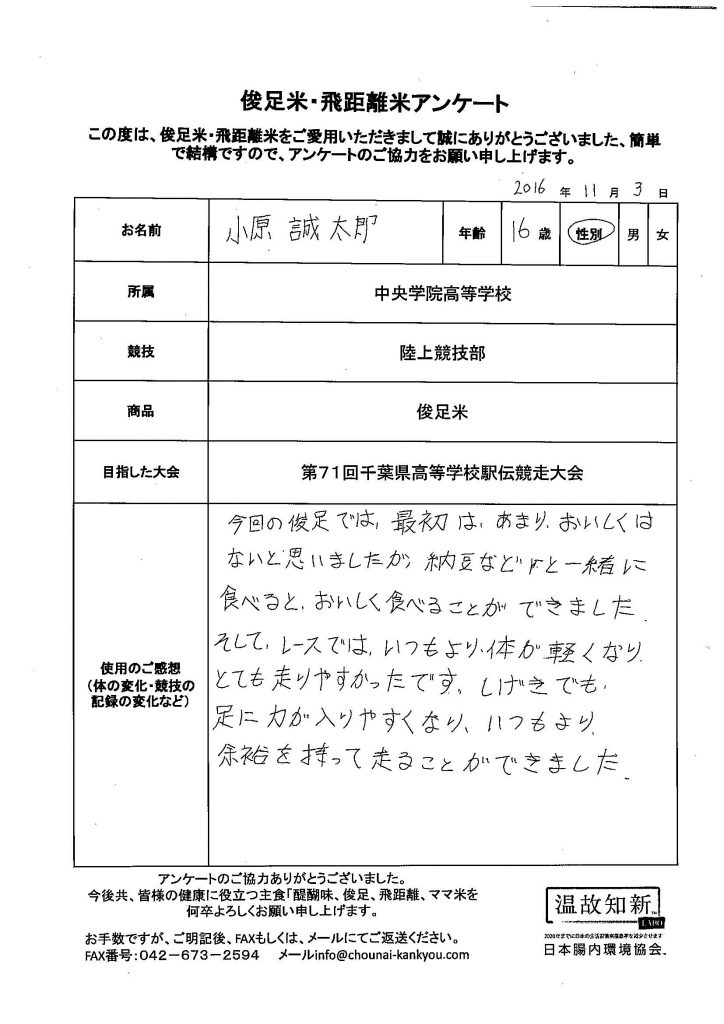 俊足米・飛距離米アンケート
この度は、俊足米・飛距離米をご愛用いただきまして誠にありがとうございました、簡単
で結構ですので、アンケートのご協力をお願い申し上げます。
2016 年 11 月 3 日
お名前 小原 誠太郎 年齢 16 歳 性別 男 女
所属 中央学院高等学校
競技 陸上競技部
商品 俊足米
目指した大会 第71回千葉県高等学校駅伝競走大会
使用のご感想
(体の変化・競技の
記録の変化など)
今回の俊足では、最初は、あまり、おいしくは
ないと思いましたが、納豆など と一緒に
食べると、おいしく食べることができました
そして、レースでは、いつもより、体が軽くなり
とても走りやすかったです。しげきでも、
足に力が入りやすくなり、いつもより
余裕を持って走ることができました
アンケートのご協力ありがとうございました。
今後共、皆様の健康に役立つ主食「醍醐味、俊足、飛距離、ママ米を
何卒よろしくお願い申し上げます。
お手数ですが、ご明記後、FAXもしくは、メールにてご返送ください。
FAX番号:042-673-2594 メールinfo@chounai-kankyou.com
温故知新
LABO
日本腸内環境協会